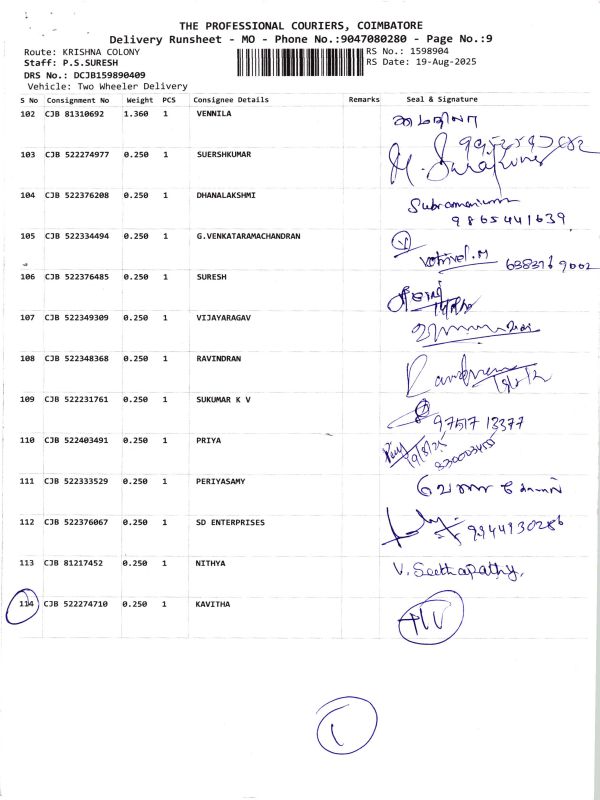 THE PROFESSIONAL COURIERS, COIMBATORE
Delivery Runsheet - MO - Phone No.:9047080280 - Page No.:9
Route: KRISHNA COLONY RS No.: 1598904
Staff: P.S.SURESH RS Date: 19-Aug-2025
DRS No.: DCJB159890409
Vehicle: Two Wheeler Delivery
S No Consignment No Weight PCS Consignee Details Remarks Seal & Signature
102 CJB 81310692 1.360 1 VENNILA
103 CJB 522274977 0.250 1 SUERSHKUMAR
104 CJB 522376208 0.250 1 DHANALAKSHMI Subramanium
9865441639
105 CJB 522334494 0.250 1 G.VENKATARAMACHANDRAN
106 CJB 522376485 0.250 1 SURESH
107 CJB 522349309 0.250 1 VIJAYARAGAV
108 CJB 522348368 0.250 1 RAVINDRAN
109 CJB 522231761 0.250 1 SUKUMAR K V 97517 13377
110 CJB 522403491 0.250 1 PRIYA
111 CJB 522333529 0.250 1 PERIYASAMY
112 CJB 522376067 0.250 1 SD ENTERPRISES 9944930286
113 CJB 81217452 0.250 1 NITHYA V. Seethapathy,
114 CJB 522274710 0.250 1 KAVITHA